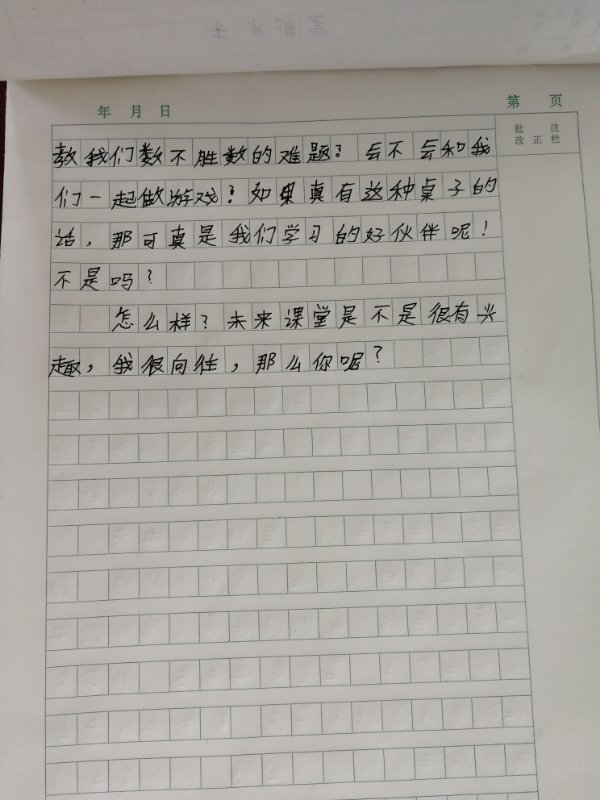 未来课堂
年 月 日
第 页
批 注
改 正 栏
教我们数不胜数的难题？会不会和我
们一起做游戏？如果真有这种桌子的
话，那可真是我们学习的好伙伴呢！
不是吗？
怎么样？未来课堂是不是很有兴
趣，我很向往，那么你呢？